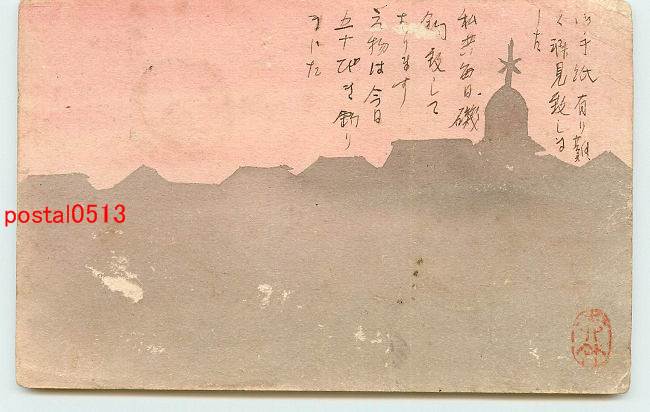 御手紙有り難
く拝見致しま
した
私共毎日磯
釣致して
おります
言物は今日
五十ぴき釣り
ました
postal0513